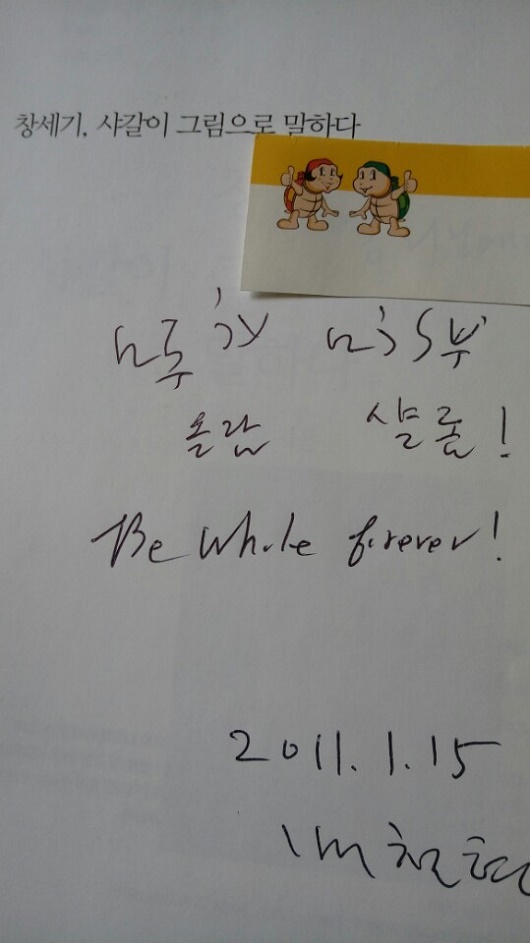 창세기, 샤갈이 그림으로 말하다
올람 샬롬!
Be whole forever!
2011.1.15